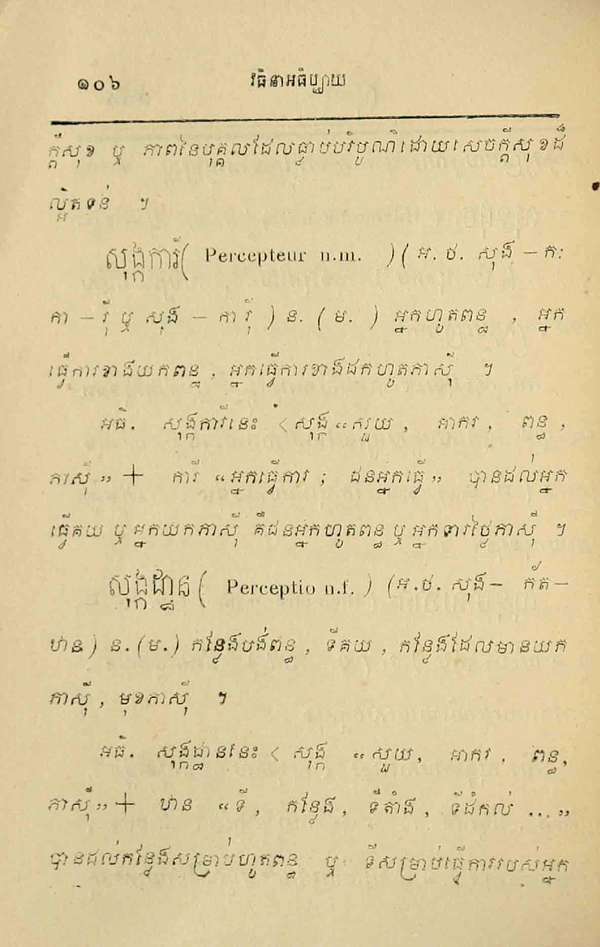 ១០៦ វិធីនាអធិប្បាយ
ក្ដីសុខ ឬ ភាពនៃបុគ្គលដែលធ្លាប់បរិបូណ៌ដោយសេចក្ដីសុខដ៏
ល្អិតទន់ ។
សុង្កការី( Percepteur n.m. ) ( អ. ថ. សុង៏ – កៈ
កា – រ៉ី ឬ សុង៏ – ការ៉ី ) ន. ( ម. ) អ្នកហូតពន្ធ , អ្នក
ធ្វើការខាងយកពន្ធ , អ្នកធ្វើការខាងដកហូតភាស៊ី ។
អធិ. សុង្កការីនេះ < សុង្ក «សួយ, អាករ, ពន្ធ,
ភាស៊ី» + ការី «អ្នកធ្វើការ ; ជនអ្នកធ្វើ» បានដល់អ្នក
ធ្វើគយ ឬ អ្នកយកភាស៊ី គឺជនអ្នកហូតពន្ធ ឬ អ្នកទារថ្លៃភាស៊ី ។
សុង្កដ្ឋាន ( Perceptio n.f. ) (អ.ថ. សុង៏– ក័ត–
ឋាន) ន. (ម.) កន្លែងបង់ពន្ធ , ទីគយ , កន្លែងដែលមានយក
ភាស៊ី , មុខភាស៊ី ។
អធិ. សុង្កដ្ឋាននេះ < សុង្ក «សួយ, អាករ, ពន្ធ,
ភាស៊ី» + ឋាន «ទី, កន្លែង, ទីតាំង, ទីដំកល់ ...»
បានដល់កន្លែងសម្រាប់ហូតពន្ធ ឬ ទីសម្រាប់ធ្វើការរបស់អ្នក